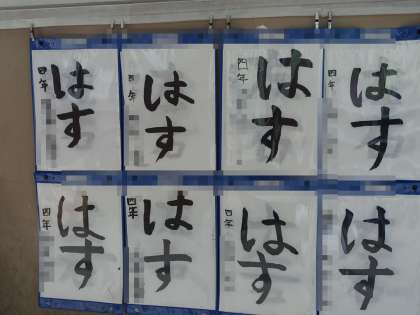 はす
四年
はす
四年
はす
四年
はす
四年
はす
四年
はす
四年
はす
四年
はす
四年